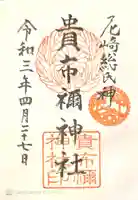 尼崎総氏神
貴布禰神社
令和三年四月二十七日
貴布禰
神社印